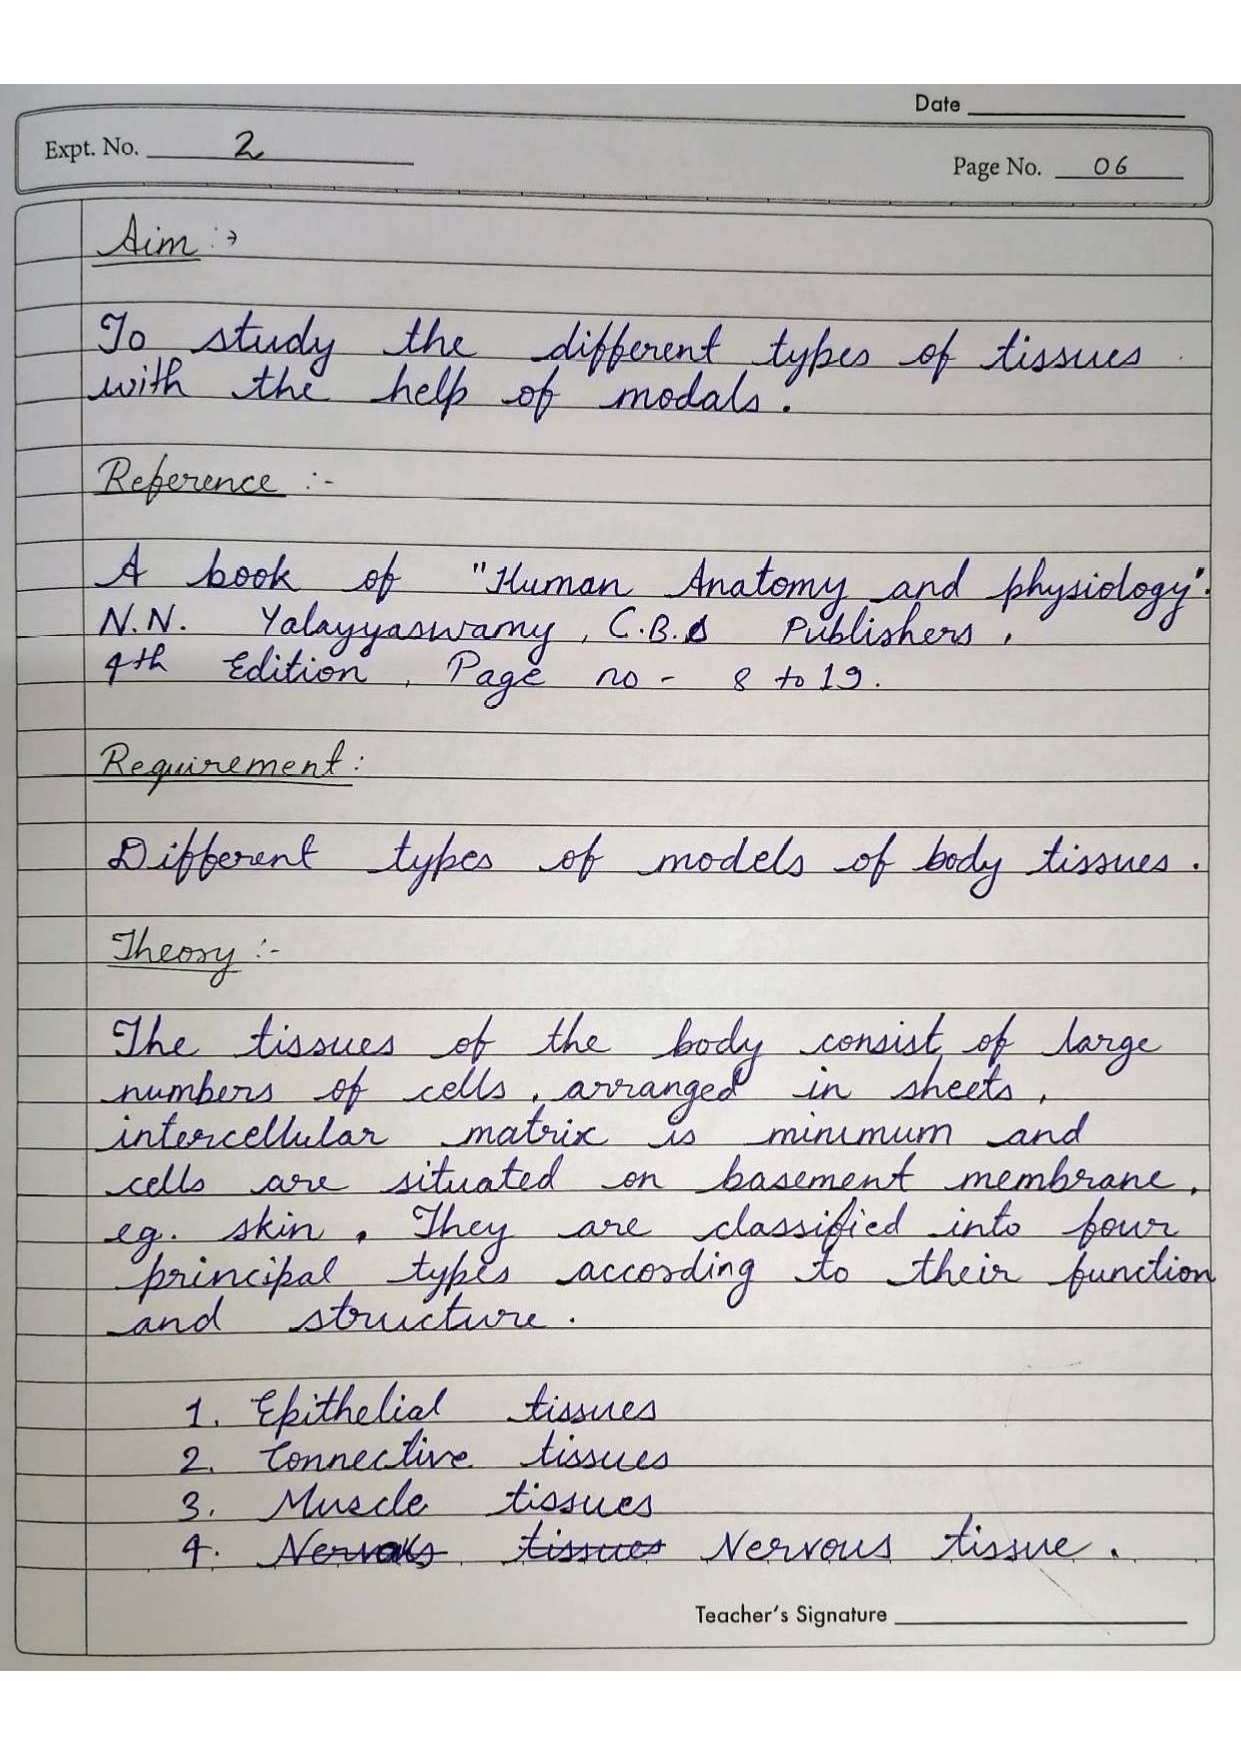 Date
Expt. No. 2
Page No. 06
Aim :→
To study the different types of tissues
with the help of modals.
Reference :-
A book of "Human Anatomy and physiology".
N.N. Yalayyaswamy, C.B.S Publishers,
4th Edition, Page no - 8 to 19.
Requirement :
Different types of models of body tissues.
Theory :-
The tissues of the body consist of large
numbers of cells, arranged in sheets,
intercellular matrix is minimum and
cells are situated on basement membrane,
eg. skin. They are classified into four
principal types according to their function
and structure.
1. Epithelial tissues
2. Connective tissues
3. Muscle tissues
4. Nervous tissue.
Teacher's Signature